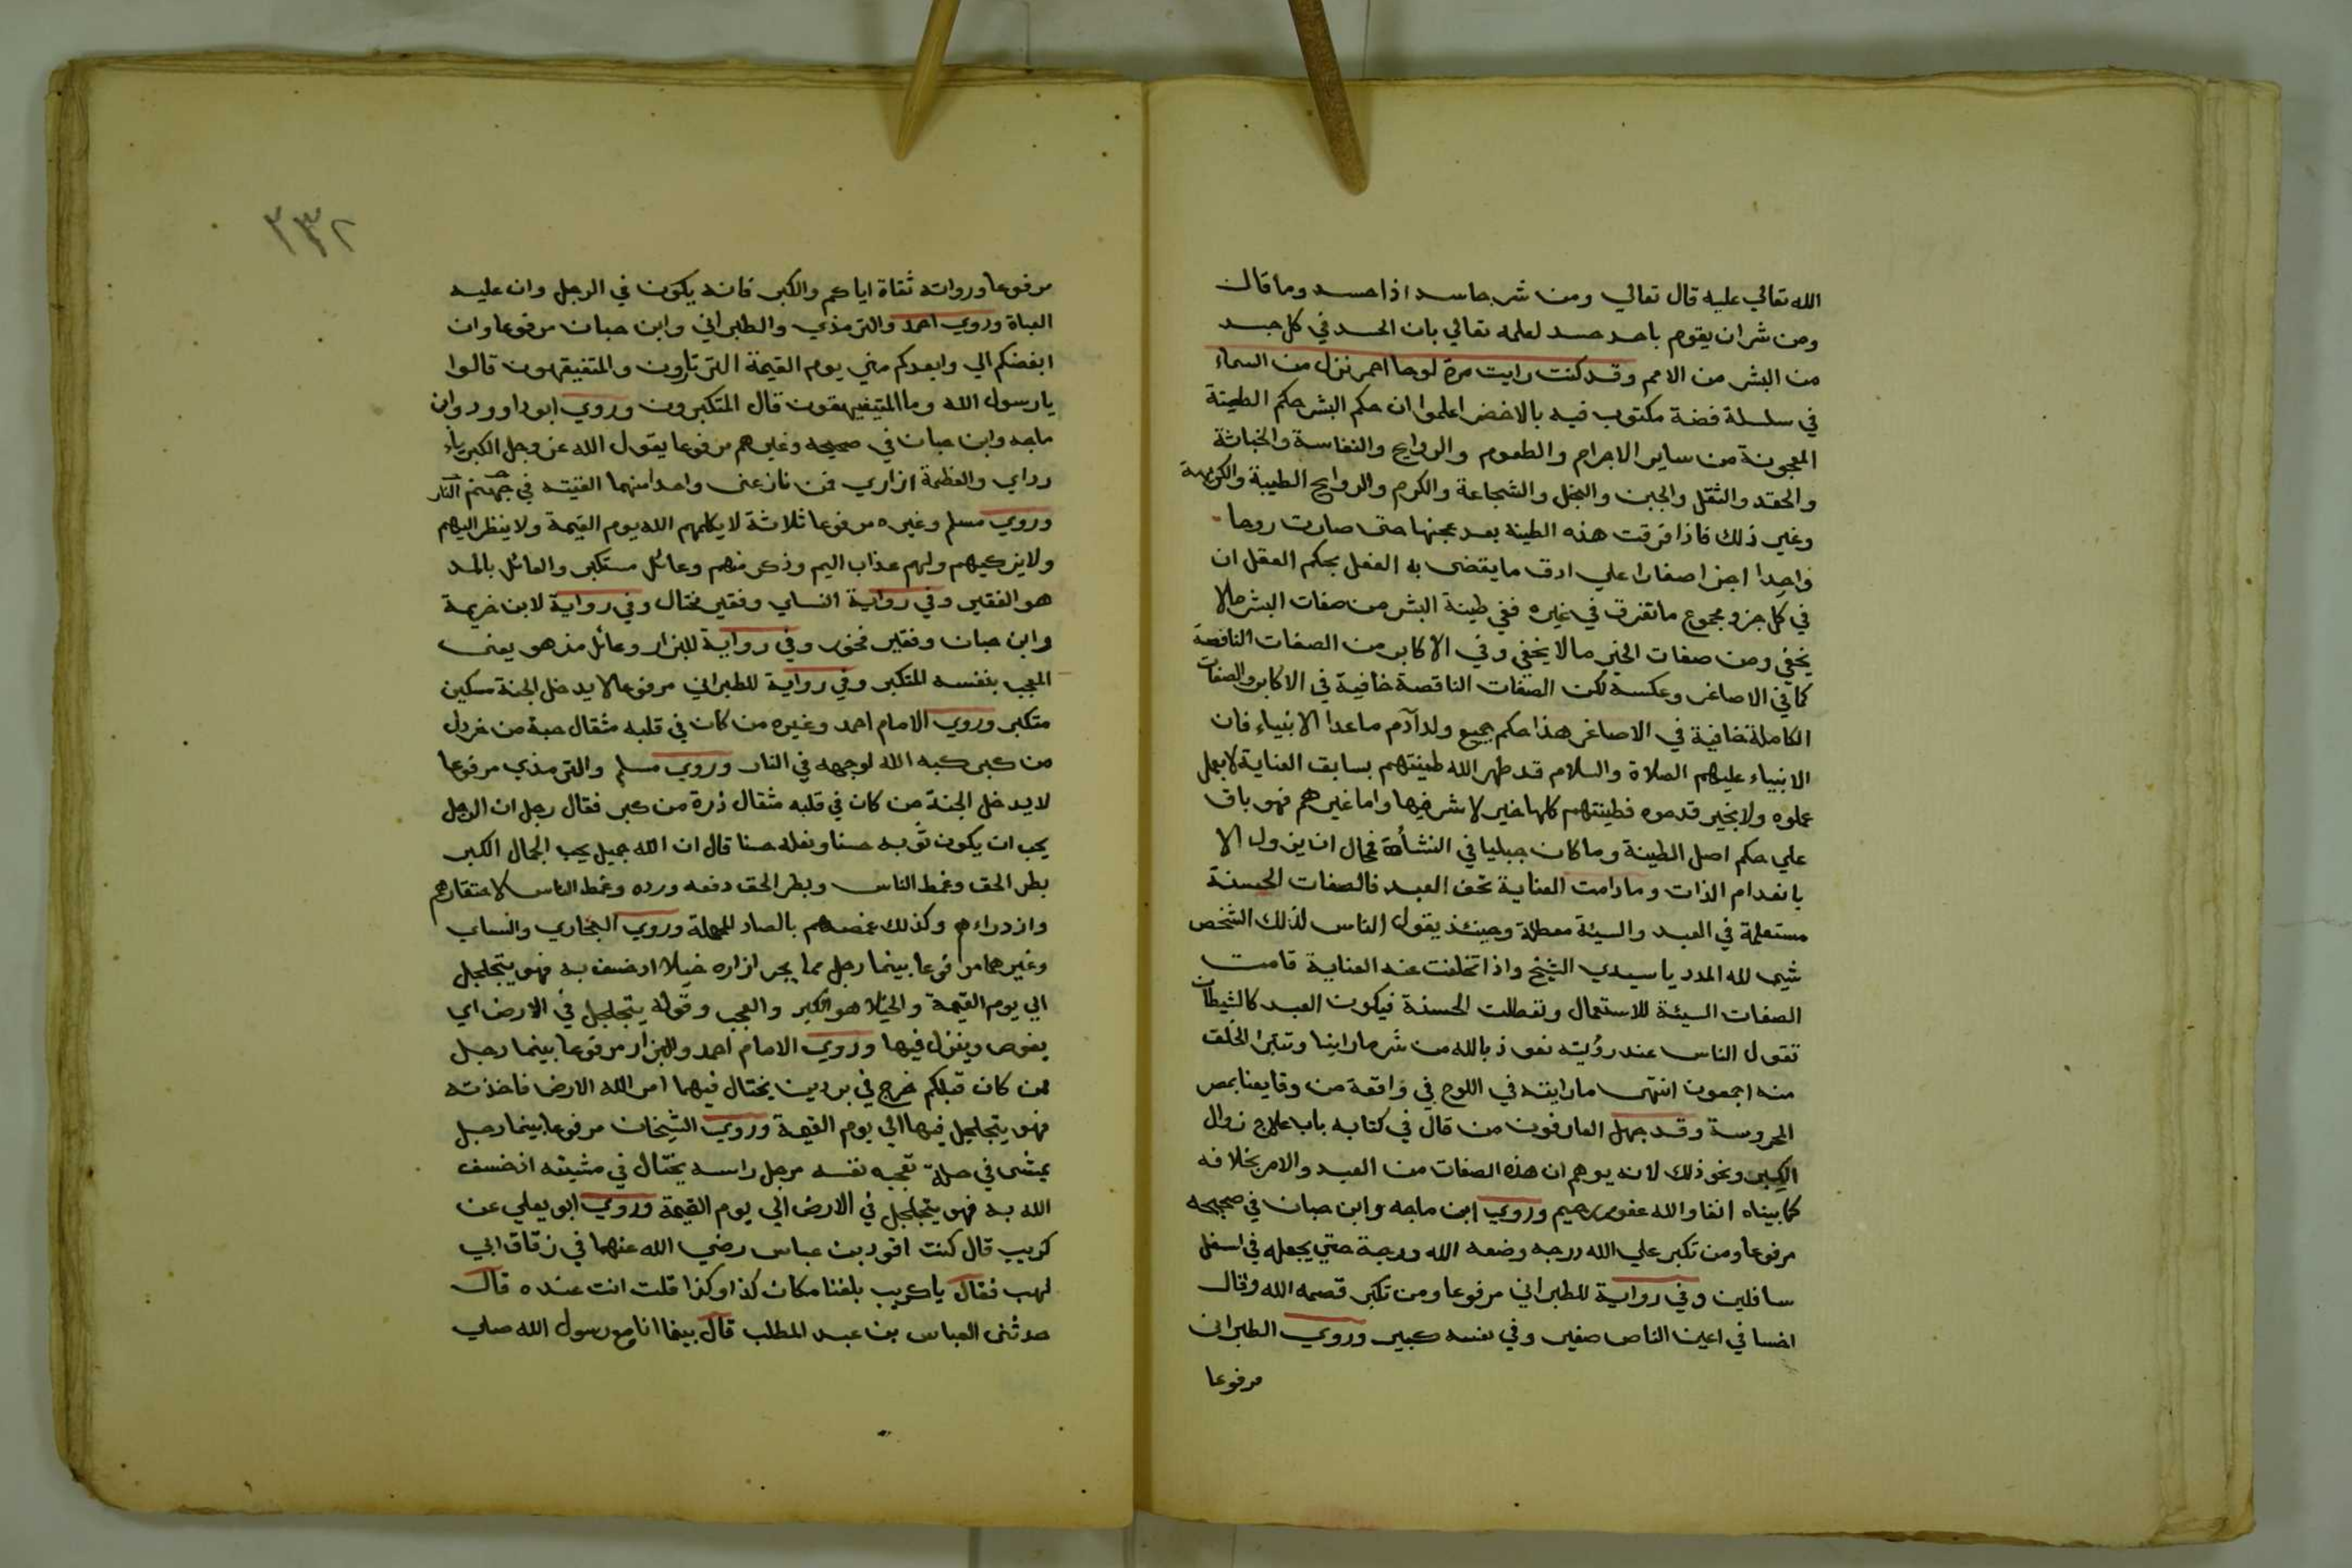 الله تعالي عليه قال تعالي ومن شر حاسد اذا حسد وما قال
ومن شر ان يقوم باحد حسد لعلمه تعالي بان الحسد في كل جسد
من البشر من الامم وقد كنت رايت مرة لوحا احمر نزل من السماء
في سلسلة فضة مكتوب فيه بالاخضر اعلموا ان حكم البشر حكم الطينة
المعجونة من ساير الاجرام والطعوم والروايح والنفاسة والخباثة
والحقد والثقل والجبن والبخل والشجاعة والكرم والروايح الطيبة والكريهة
وغير ذلك فاذا فرقت هذه الطينة بعد عجنها حتى صارت روحا
واحدا اجزا صغارا علي ادق ما يقتضى به العقل بحكم العقل ان
في كل جزو مجموع ما تفرق في غيره ففي طينة البشر من صفات البشر مالا
يخفي ومن صفات الخير مالا يخفي وفي الاكابر من الصفات الناقصة
كما في الاصاغر وعكسه لكن الصفات الناقصة خافية في الاكابر والصفات
الكاملة خافية في الاصاغر هذا حكم جميع ولد آدم ماعدا الانبياء فان
الانبياء عليهم الصلاة والسلام قد طهر الله طينتهم بسابق العناية لا بعمل
عملوه ولا بخير قدموه فطينتهم كلها خير لا شر فيها واما غيرهم فهو باق
علي حكم اصل الطينة وما كان جبليا في النشأة فمحال ان يزول الا
بانعدام الذات ومادامت العناية تحف العبد فالصفات الحسنة
مستعملة في العبد والسيئة معطلة وحينئذ يقول الناس لذلك الشخص
شي لله المدد يا سيدي الشيخ واذا تخلفت عنه العناية قامت
الصفات السيئة للاستعمال وتعطلت الحسنة فيكون العبد كالشيطان
تقول الناس عند رؤيته نعوذ بالله من شر ما راينا وتتبرا الخلق
منه اجمعون انتهى ما رايته في اللوح في واقعة من وقايعنا بمصر
المحروسة وقد جهل العارفون من قال في كتابه باب علاج زوال
الكبر ونحو ذلك لانه يوهم ان هذه الصفات من العبد والامر بخلافه
كما بيناه انفا والله غفور رحيم وروي ابن ماجه وابن حبان في صحيحه
مرفوعا ومن تكبر علي الله درجه وضعه الله درجة حتي يجعله في اسفل
سافلين وفي رواية للطبراني مرفوعا ومن تكبر قصمه الله وقال
اخسا في اعين الناس صغير وفي نفسه كبير وروي الطبراني
مرفوعا
٢٣٢
مرفوعا ورواته ثقاة اياكم والكبر فانه يكون في الرجل وان عليه
العباة وروي احمد والترمذي والطبراني وابن حبان مرفوعا وان
ابغضكم الي وابعدكم مني يوم القيمة الثرثارون والمتفيقهون قالوا
يا رسول الله وما المتيفيهقون قال المتكبرون وروي ابوداوود وابن
ماجه وابن حبان في صحيحه وغيرهم مرفوعا يقول الله عز وجل الكبرياء
رداي والعظمة ازاري فمن نازعني واحدا منهما القيته في جهنم النار
وروي مسلم وغيره مرفوعا ثلاثة لا يكلمهم الله يوم القيمة ولا ينظر اليهم
ولا يزكيهم ولهم عذاب اليم وذكر منهم وعائل مستكبر والعائل بالمد
هو الفقير وفي رواية النساي وفقير مختال وفي رواية لابن خزيمة
وابن حبان وفقير فخور وفي رواية للبزار وعائل مزهو يعني
المعجب بنفسه المتكبر وفي رواية للطبراني مرفوعا لا يدخل الجنة مسكين
متكبر وروي الامام احمد وغيره من كان في قلبه مثقال حبة من خردل
من كبر كبه الله لوجهه في النار وروي مسلم والترمذي مرفوعا
لا يدخل الجنة من كان في قلبه مثقال ذرة من كبر فقال رجل ان الرجل
يحب ان يكون ثوبه حسنا ونعله حسنا قال ان الله جميل يحب الجمال الكبر
بطر الحق وغمط الناس وبطر الحق دفعه ورده وغمط الناس لاحتقارهم
وازدراءهم وكذلك غمصهم بالصاد المهملة وروي البخاري والنساي
وغيرهما مرفوعا بينما رجل مما يجر ازاره خيلا اذ خسف به فهو يتجلجل
الي يوم القيمة والخيلا هو الكبر والعجب وقوله يتجلجل في الارض اي
يغوص وينزل فيها وروي الامام احمد والبزار مرفوعا بينما رجل
ممن كان قبلكم خرج في بردين يختال فيهما امر الله الارض فاخذته
فهو يتجلجل فيها الي يوم القيمة وروي الشيخان مرفوعا بينما رجل
يمشى في حلة تعجبه نفسه مرجل راسه يختال في مشيته اذ خسف
الله به فهو يتجلجل في الارض الي يوم القيمة وروي ابو يعلي عن
كريب قال كنت اقود بن عباس رضي الله عنهما في زقاق ابي
لهب فقال يا كريب بلغنا مكان كذا وكذا قلت انت عنده قال
حدثني العباس بن عبد المطلب قال بينما انا مع رسول الله صلي